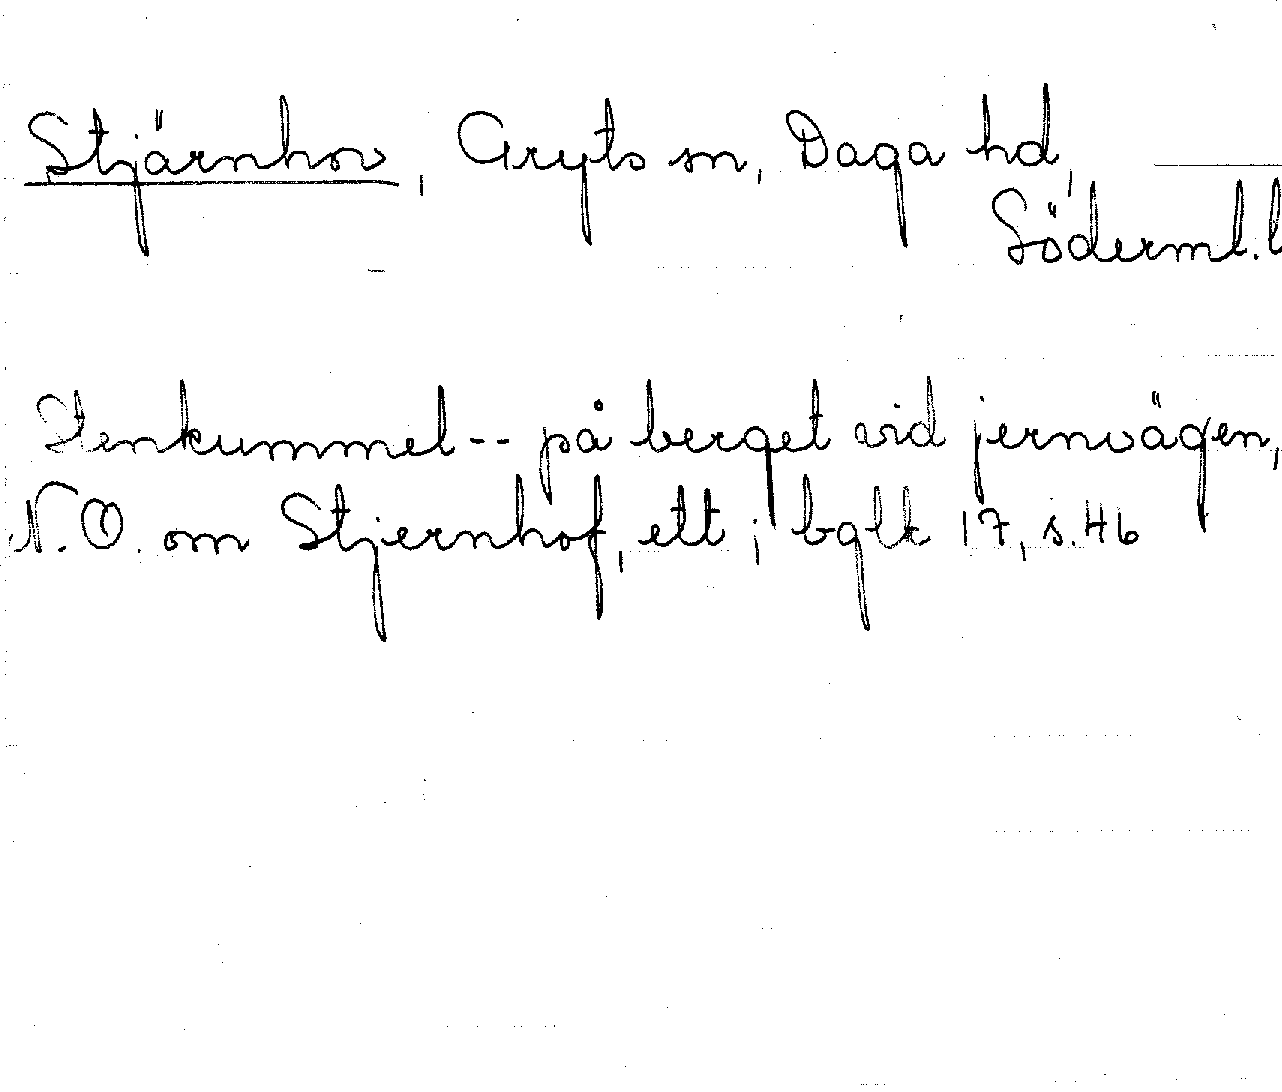 Stjärnhov, Gryts sn, Daga hd,
Söderml. l
Stenkummel -- på berget vid jernvägen,
N.O. om Stjernhof, ett; bglt 17, s. 46